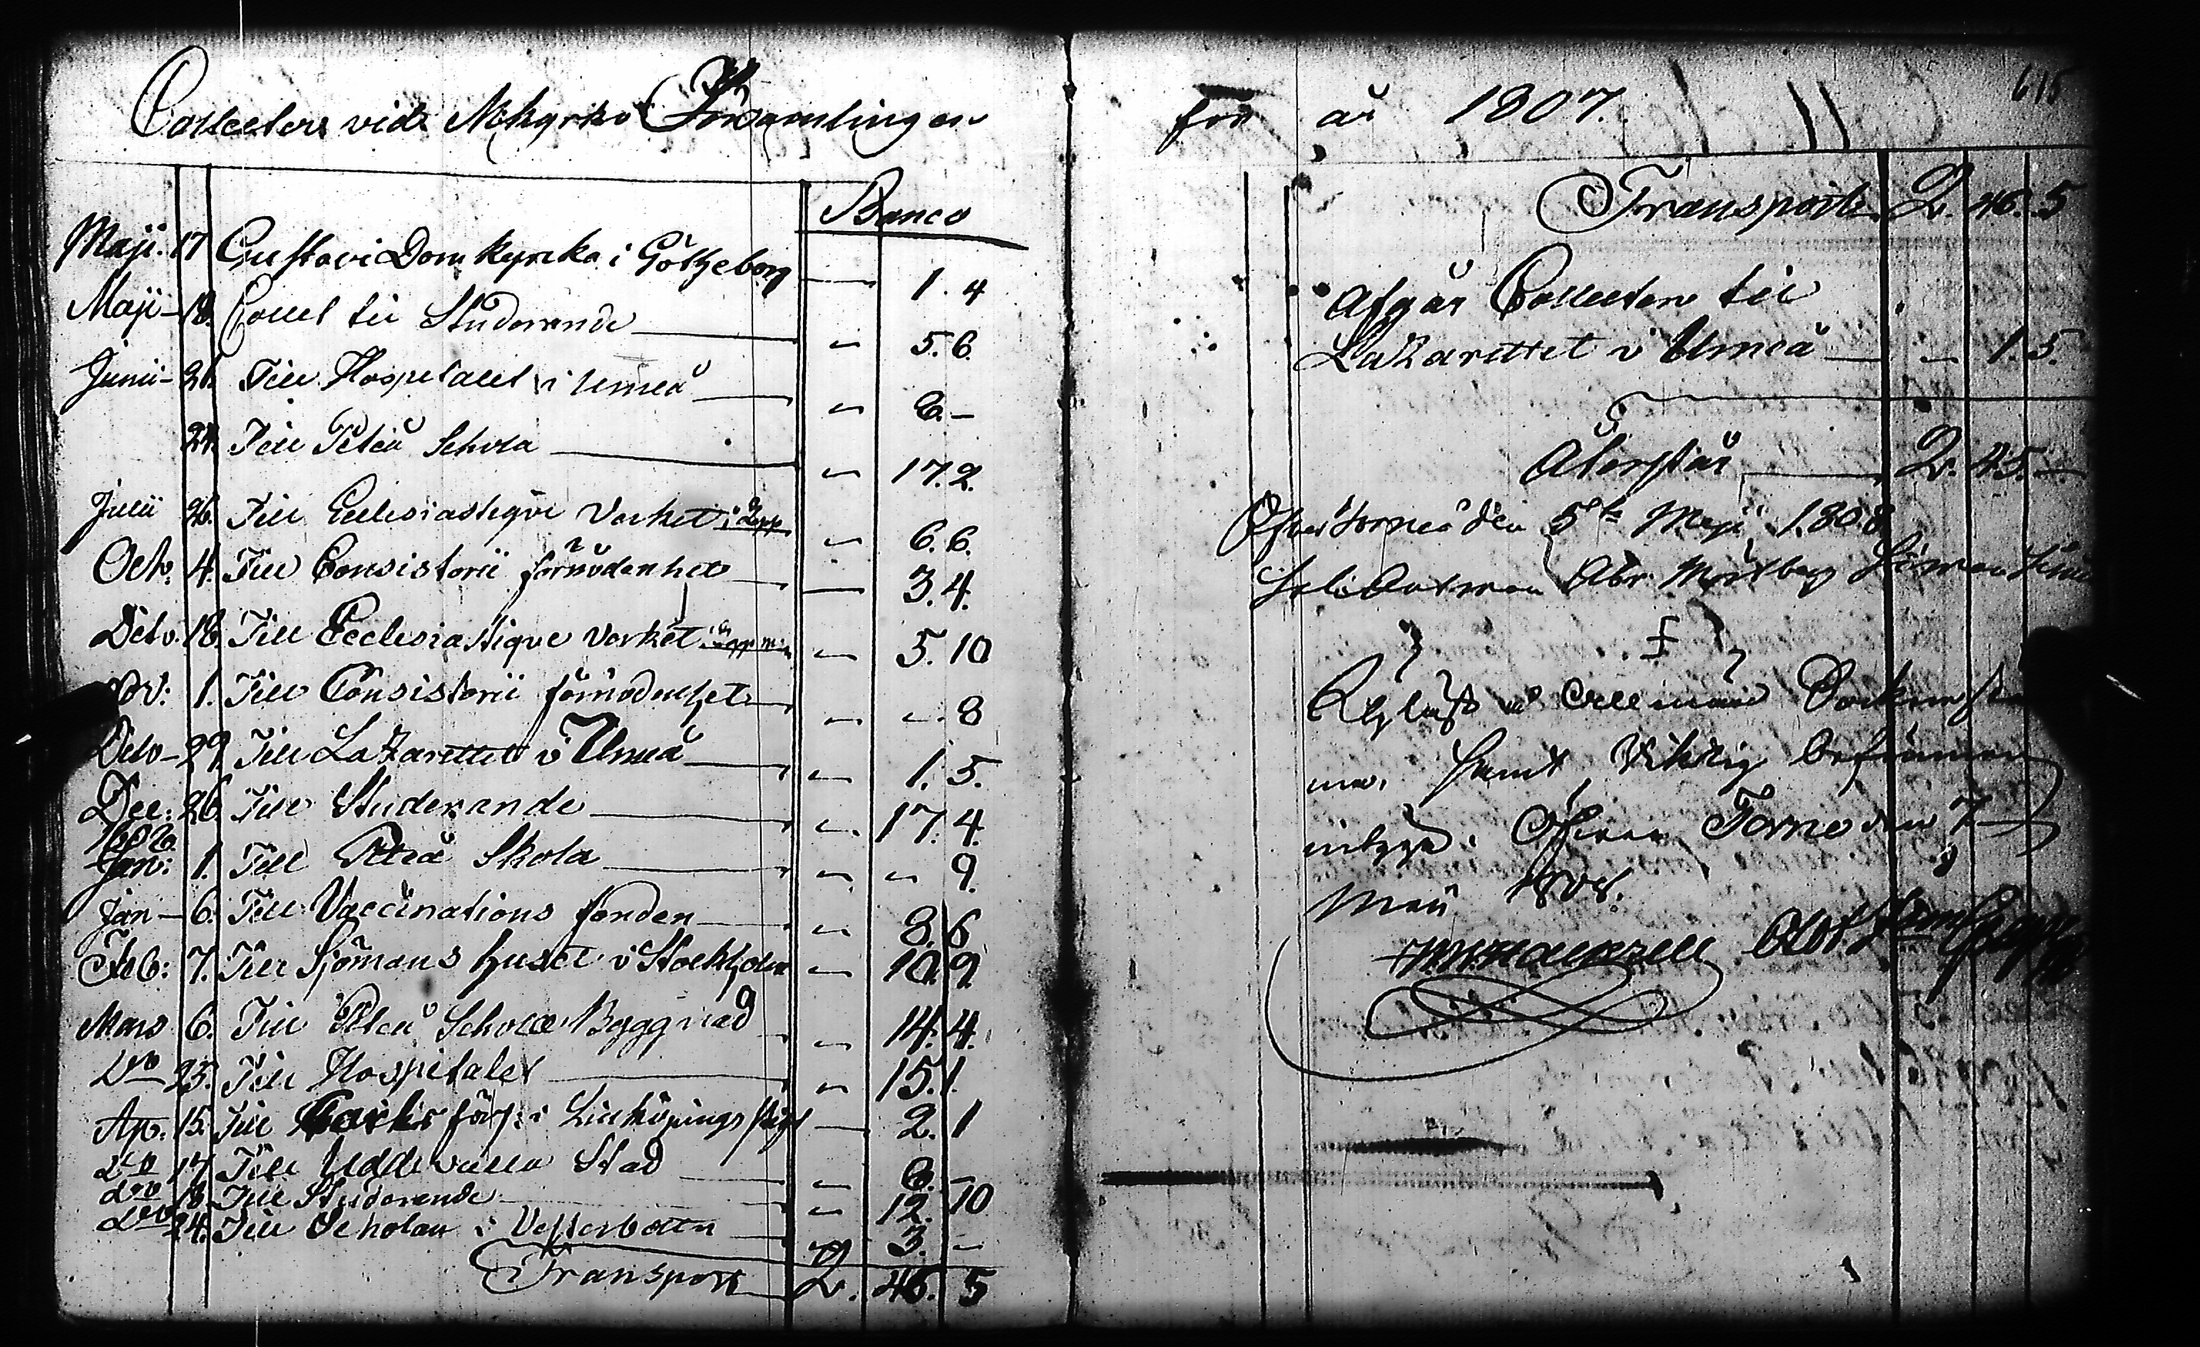 Collecter vid Nkyrko Församlingen
Banco
Maji. 17 Gustavi Domkyrka i Götheborg — 1. 4
Maji — 18. Coll til Studerande — " 5. 6.
Junii — 21. Till Hospitalet i Umeå — " 8. —
24. Till Piteå Schola — " 17. 2.
Julii 26. Till Ecclesiastique Verket i Lapp — " 6. 6.
Octr. 4. Till Consistorii förnödenhet — 3. 4.
Dito. 18. Till Ecclesiastique Verket i Lappm — " 5. 10
Nov: 1. Till Consistorii förnödenhet — " ". 8
Dito — 29. Till Lazarettet i Umeå — " 1. 5.
Dec: 26. Till Studerande — ". 17. 4.
1808
Jan: 1. Till Piteå Skola — " " 9.
Jan — 6. Till Vaccinations fonden — " 8. 6
Feb: 7. Till Sjömans huset i Stockholm " 10. 9.
Mars 6. Till Piteå Schole Byggnad — " 14. 4.
Dto 25. Till Hospitalet — " 15. 1.
Ap. 15. Till förs: i Linköpings stift — 2. 1
Dto 17. Till Uddevalla Stad — " 6. —
Dto 18. Till Studerande — " 12. 10
Dto 24. Till Scholan i Vesterbotten — " 3. —
Transport 2. 46. 5
för år 1807.
615
Transport 2. 46. 5
Afgår Collecten til
Lazarettet i Umeå — " 1. 5.
Återstår — 2. 45. —
Öfver Torneå den 5te Maji 1808
Abr. Mörtberg
samt Riktig befunnen
intyga. Öfver Torne den 7
Maii 1808.